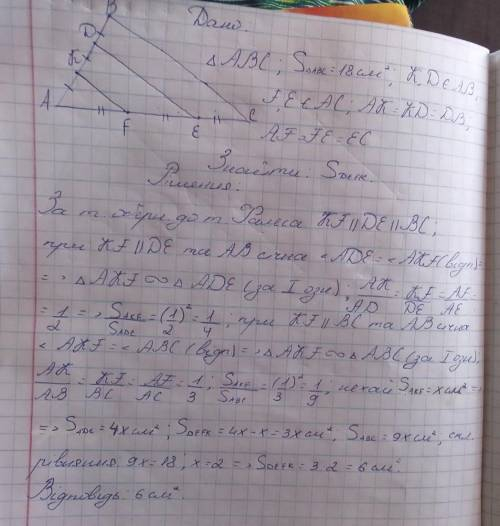 Дано:
B
D
K
A
F
E
C
△ABC; S△ABC = 18 см²; K, D ∈ AB,
F, E ∈ AC; AK = KD = DB,
AF = FE = EC
Знайти: SDEFK.
Рішення:
За т. оберн. до т. Фалеса KF || DE || BC;
при KF || DE та AB січна ∠ADE = ∠AKF (відп) =
=> △AKF ∞ △ADE (за I озн); AK/AD = KF/DE = AF/AE =
= 1/2 => SAKF/SADE = (1/2)² = 1/4; при KF || BC та AB січна
∠AKF = ∠ABC (відп) => △AKF ∞ △ABC (за I озн),
AK/AB = KF/BC = AF/AC = 1/3; SAKF/SABC = (1/3)² = 1/9; нехай SAKF = x см² =>
=> SADE = 4x см²; SDEFK = 4x - x = 3x см², SABC = 9x см², скл.
рівняння 9x = 18; x = 2 => SDEFK = 3·2 = 6 см².
Відповідь: 6 см².